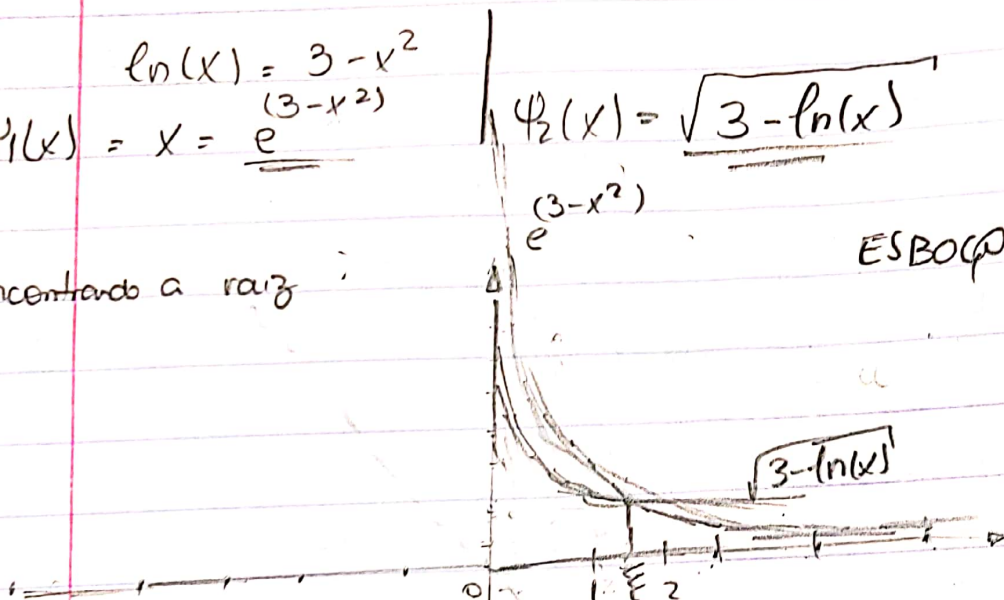 ln(x) = 3 - x²
φ₁(x) = x = e^(3-x²)
φ₂(x) = √3 - ln(x)
e^(3-x²)
ESBOÇO
ncontrando a raiz :
√3-ln(x)
0 1 ξ 2